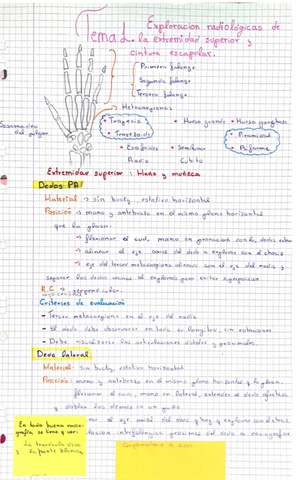 Exploración radiológicas de
Tema 2. la extremidad superior y
cintura escapular.
Primera falange
Segunda falange
Tercera falange
Metacarpianos
Sesamoideo
del pulgar
• Trapecio
• Hueso grande
• Hueso ganchoso
• Trapezoide
• Piramidal
• Escafoides
• Semilunar
• Pisiforme
Radio
Cúbito
Extremidad superior: Mano y muñeca
Dedos PA
Material → sin bucky, estativo horizontal
Posición → mano y antebrazo en el mismo plano horizontal
que la placa:
→ flexionar el codo, mano en pronación con los dedos
→ alinear el eje axial del dedo a explorar con el chasis
→ eje del tercer metacarpiano alineado con el eje del radio y
separar los dedos
R.C → perpendicular.
Criterios de evaluación
- Tercer metacarpiano en el eje del radio
- El dedo debe observarse en toda su longitud, sin rotaciones
- Debe visualizarse las articulaciones distales y proximales.
Dedo lateral
Material: sin bucky, estativo horizontal
Posición: mano y antebrazo en el mismo plano horizontal q la placa.
flexionar el codo, mano en lateral, extender el dedo afectado
y doblar los demás en un puño
el eje axial del
En toda buena radio-
grafía se tiene q ver:
La trabécula ósea
y la parte blanda